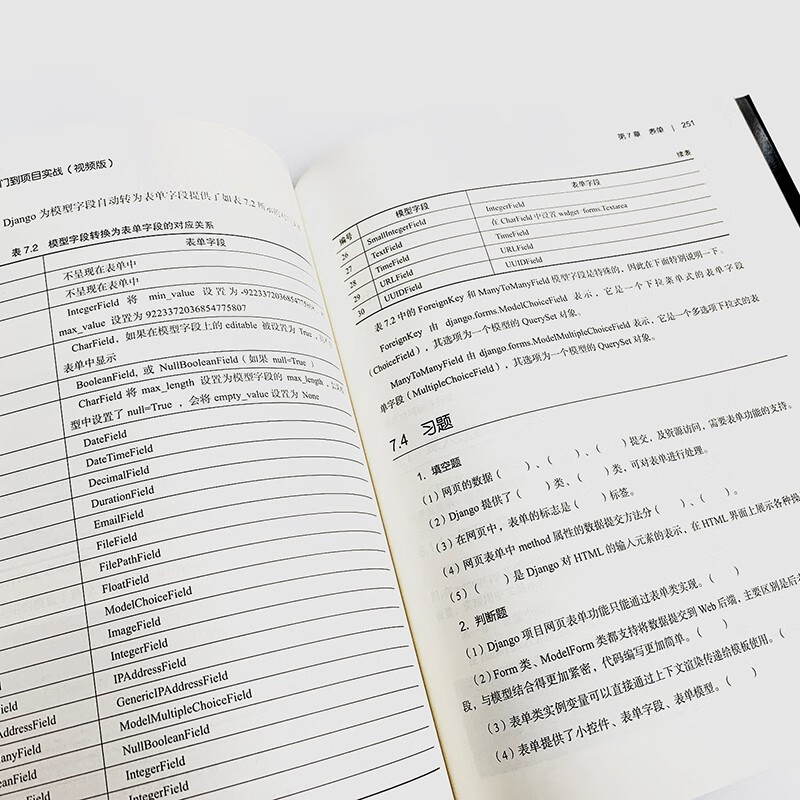 门到项目实战（视频版）
Django 为模型字段自动转为表单字段提供了如表 7.2 所示的
表 7.2 模型字段转换为表单字段的对应关系
表单字段
不呈现在表单中
不呈现在表单中
IntegerField 将 min_value 设置为-9223372036854775808，
max_value 设置为 9223372036854775807
CharField，如果在模型字段上的 editable 被设置为 True，
表单中显示
BooleanField, 或 NullBooleanField（如果 null=True）
CharField 将 max_length 设置为模型字段的 max_length，
型中设置了 null=True ，会将 empty_value 设置为 None
DateField
DateTimeField
DecimalField
DurationField
EmailField
FileField
FilePathField
FloatField
ModelChoiceField
ImageField
IntegerField
IPAddressField
ield GenericIPAddressField
AddressField ModelMultipleChoiceField
anyField NullBooleanField
eanField IntegerField
IntegerField
第 7 章 表单 | 251
续表
编号 模型字段 表单字段
26 SmallIntegerField IntegerField
27 TextField 在 CharField 中设置 widget=forms.Textarea
28 TimeField TimeField
29 URLField URLField
30 UUIDField UUIDField
表 7.2 中的 ForeignKey 和 ManyToManyField 模型字段是特殊的，因此在下面特别说明一下。
ForeignKey 由 django.forms.ModelChoiceField 表示，它是一个下拉菜单式的表单字段
（ChoiceField），其选项为一个模型的 QuerySet 对象。
ManyToManyField 由 django.forms.ModelMultipleChoiceField 表示，它是一个多选项下拉式的表
单字段（MultipleChoiceField），其选项为一个模型的 QuerySet 对象。
7.4 习题
1. 填空题
（1）网页的数据（ ）、（ ）、（ ）提交，及资源访问，需要表单功能的支持。
（2）Django 提供了（ ）类、（ ）类，可对表单进行处理。
（3）在网页中，表单的标志是（ ）标签。
（4）网页表单中 method 属性的数据提交方法分（ ）、（ ）。
（5）（ ）是 Django 对 HTML 的输入元素的表示，在 HTML 界面上展示各种操
2. 判断题
（1）Django 项目网页表单功能只能通过表单类实现。（ ）
（2）Form 类、ModelForm 类都支持将数据提交到 Web 后端，主要区别是后者
段，与模型结合得更加紧密，代码编写更加简单。（ ）
（3）表单类实例变量可以直接通过上下文渲染传递给模板使用。（
（4）表单提供了小控件、表单字段、表单模型。（ ）